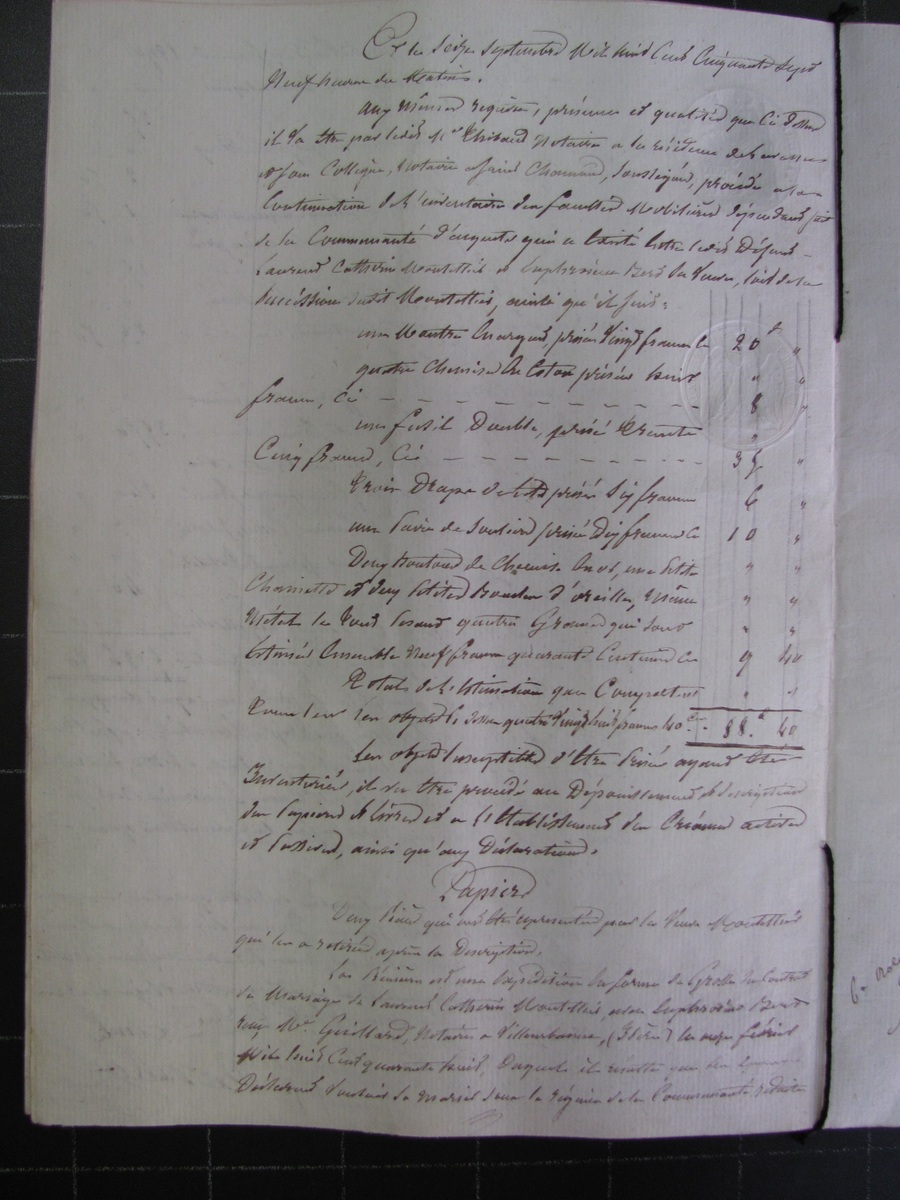 Ce jour seize septembre Mil huit Cent Cinquante Sept
Neuf heures du Matin.
aux mêmes requises, présence et qualités que Ci dessus
il va être par ledit Me Notaire a la résidence de
et son Collègue, Notaire a Saint Chamond, soussignés, procédé a la
Continuation de l'inventaire des facultés Mobilières dépendant soit
de la Communauté d'acquets qui a existé entre ledit Défunt
Laurent Catherin et Euphrosine sa Veuve, soit de la
succession dudit, ainsi qu'il suit:
une Montre prisée Vingt francs Ci 20 f "
quatre Chemises de Coton prisées huit " "
francs, Ci — — — — — — 8 "
un fusil Double, prisé trente "
Cinq francs, Ci — — — — — — 35 "
trois Draps de lit prisés Six francs 6 "
une paire de Souliers prisée Dix francs Ci 10 "
Deux boutons de Chemise en or, une petite " "
Chainette et deux petites Boucles d'oreilles, même " "
Métal le tout pesant quatre Grammes qui sont " "
Estimés Ensemble Neuf francs quarante Centimes Ci 9 40
Total de l'Estimation que Comportent " "
tous les objets Ci dessus quatre Vingt huit francs 40 c - 88 f 40
Les objets susceptibles d'être prisés ayant été
Inventoriés, il va être procédé au Dépouillement & description
des papiers & titres et a l'Etablissement des Créances actives
et passives, ainsi qu'aux Déclarations.
Papiers
Deux pièces qui ont été représentées par la Veuve
qui les a retirées après la Description.
La Première est une Expédition en forme de Grosse du Contrat
de Mariage de Laurent Catherin avec Euphrosine
reçu Me Guillard, Notaire a Villeurbanne, (Isère) le onze février
Mil huit Cent quarante huit, Duquel il résulte que les Epoux
Déclarent vouloir se Marier sous le régime de la Communauté réduite